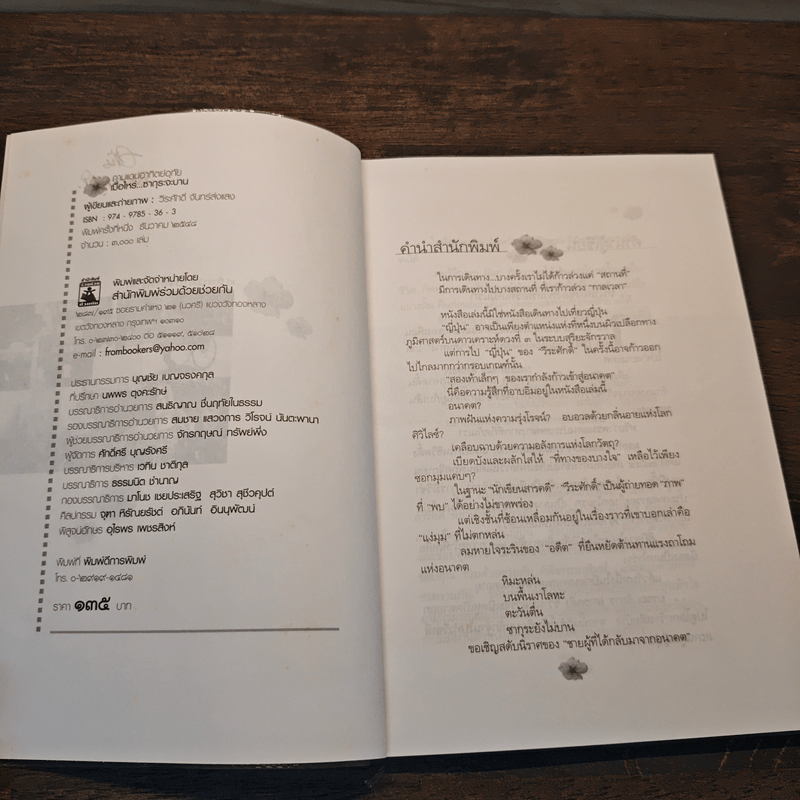 ตามแดนอาทิตย์อุทัย
เมื่อไหร่...ซากุระจะบาน
ผู้เขียนและถ่ายภาพ : วีระศักดิ์ จันทร์ส่งแสง
ISBN : 974 - 9785 - 36 - 3
พิมพ์ครั้งที่หนึ่ง ธันวาคม ๒๕๔๘
จำนวน : ๓,๐๐๐ เล่ม
พิมพ์และจัดจำหน่ายโดย
สำนักพิมพ์ร่วมด้วยช่วยกัน
ซอยรามคำแหง ๒๑ (นวศรี) แขวงวังทองหลาง
เขตวังทองหลาง กรุงเทพฯ ๑๐๓๑๐
e-mail : frombookers@yahoo.com
ประธานกรรมการ บุญชัย เบญจรงคกุล
ที่ปรึกษา นพพร ตุงคะรักษ์
บรรณาธิการอำนวยการ สนธิญาณ ชื่นฤทัยในธรรม
รองบรรณาธิการอำนวยการ สมชาย แสวงการ วิโรจน์ นันตะพานา
ผู้ช่วยบรรณาธิการอำนวยการ จักรกฤษณ์ ทรัพย์พึ่ง
ผู้จัดการ ศักดิ์ศรี บุญรังศรี
บรรณาธิการบริหาร เวทิน ชาติกุล
บรรณาธิการ ธรรมนิต ชำนาญ
กองบรรณาธิการ มาโนช เชยประเสริฐ สุวิชา สุชีวคุปต์
ศิลปกรรม จุฑา หิรัณยรัชต์ อภินันท์ อินนุพัฒน์
พิสูจน์อักษร อุไรพร เพชรสิงห์
พิมพ์ที่ พิมพ์ดีการพิมพ์
โทร. ๐-๒๙๑๙-๑๔๘๑
ราคา ๑๓๕ บาท
คำนำสำนักพิมพ์
ในการเดินทาง...บางครั้งเราไม่ได้ก้าวล่วงแค่ "สถานที่"
มีการเดินทางไปบางสถานที่ ที่เราก้าวล่วง "กาลเวลา"
หนังสือเล่มนี้มิใช่หนังสือเดินทางไปเที่ยวญี่ปุ่น
"ญี่ปุ่น" อาจเป็นเพียงตำแหน่งแห่งที่หนึ่งบนผิวเปลือกทาง
ภูมิศาสตร์บนดาวเคราะห์ดวงที่ ๓ ในระบบสุริยะจักรวาล
แต่การไป "ญี่ปุ่น" ของ "วีระศักดิ์" ในครั้งนี้อาจก้าวออก
ไปไกลมากกว่ากรอบเกณฑ์นั้น
"สองเท้าเล็กๆ ของเรากำลังก้าวเข้าสู่อนาคต"
นี่คือความรู้สึกที่อาบอิ่มอยู่ในหนังสือเล่มนี้
อนาคต?
ภาพฝันแห่งความรุ่งโรจน์? อบอวลด้วยกลิ่นอายแห่งโลก
ศิวิไลซ์?
เคลือบฉาบด้วยความอลังการแห่งโลกวัตถุ?
เบียดบังและผลักไสให้ "ที่ทางของบางใจ" เหลือไว้เพียง
ซอกมุมแคบๆ?
ในฐานะ "นักเขียนสารคดี" "วีระศักดิ์" เป็นผู้ถ่ายทอด "ภาพ"
ที่ "พบ" ได้อย่างไม่ขาดพร่อง
แต่เชิงชั้นที่ซ้อนเหลื่อมกันอยู่ในเรื่องราวที่เขาบอกเล่าคือ
"แง่มุม" ที่ไม่ตกหล่น
ลมหายใจระรินของ "อดีต" ที่ยืนหยัดต้านทานแรงถาโถม
แห่งอนาคต
หิมะหล่น
บนพื้นเงาโลหะ
ตะวันตื่น
ซากุระยังไม่บาน
ขอเชิญสดับนิราศของ "ชายผู้ที่ได้กลับมาจากอนาคต"